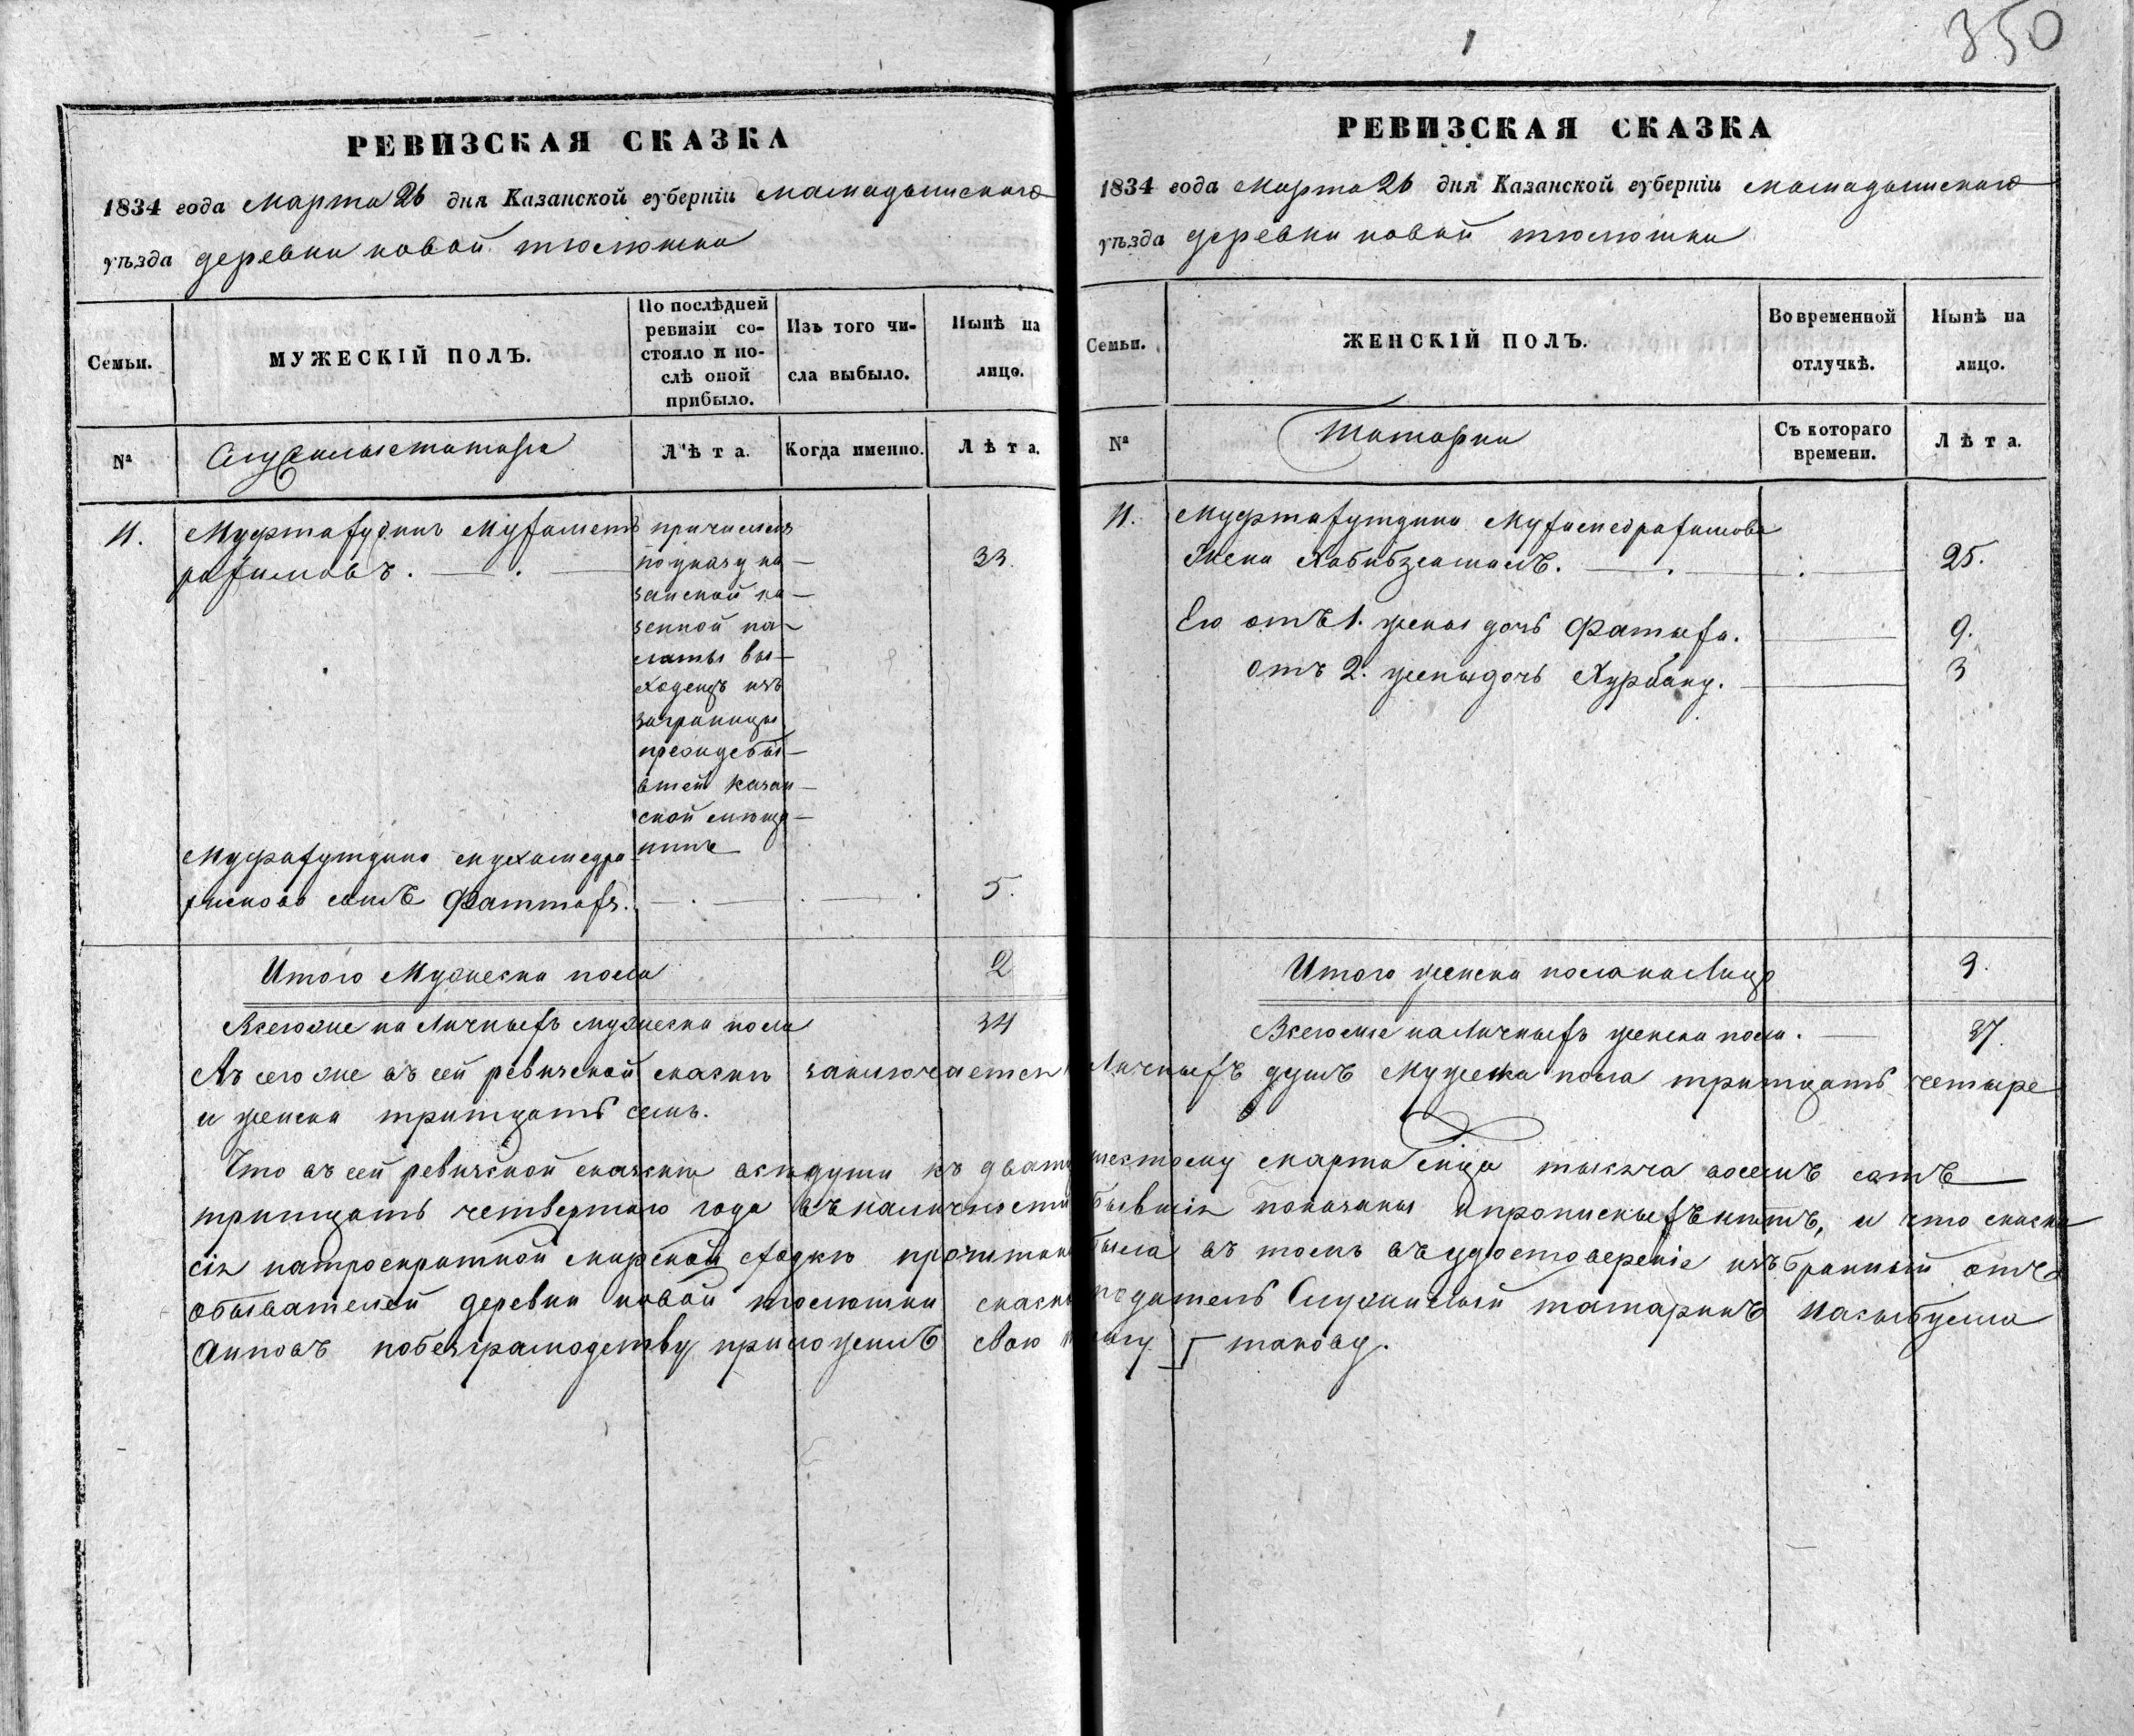 350
РЕВИЗСКАЯ СКАЗКА
1834 года марта 26 дня Казанской губерніи мамадышскаго
уѣзда деревни новой тюлюшки
Семьи.
МУЖЕСКІЙ ПОЛЪ.
По послѣдней
ревизіи со-
стояло и по-
слѣ оной
прибыло.
Изъ того чи-
сла выбыло.
Нынѣ на
лицо.
№
Служилые татара
Лѣта.
Когда именно.
Лѣта.
11.
Муфтахудинъ Мухаметъ
рахимовъ.
причисленъ
по указу ка-
занской ка-
зенной па-
латы вы-
ходецъ изъ
заграницы
прежде быв-
шей казан-
ской
33.
Муфтахутдина мухамедра-
химова сынъ Фаттахъ.
5.
Итого Мужеска пола
2
Всегоже на личныхъ мужеска пола
34
РЕВИЗСКАЯ СКАЗКА
1834 года Марта 26 дня Казанской губерніи мамадышскаго
уѣзда деревни новой тюлюшки
Семьи.
ЖЕНСКІЙ ПОЛЪ.
Во временной
отлучкѣ.
Нынѣ на
лицо.
№
Татарки
Съ котораго
времени.
Лѣта.
11.
Муфтахутдина Мухамедрахимова
Жена Хабибземалъ.
25.
Его отъ 1. жены дочь Фатыха.
9.
отъ 2. жены дочь Хурбану.
3
Итого женска пола на Лицо
3.
Всегоже на личныхъ женска пола.
37.
А всегоже въ сей ревизской сказкѣ заключается Личныхъ душъ Мужеска пола тритцать четыре
и женска тритцать семь.
Что въ сей ревизской сказкѣ всѣ души къ двадцать шестому марта мца тысяча восемь сотъ
тритцать четвертаго года въ наличности бывшія показаны и прописныхъ нѣтъ, и что сказка
сія на троекратной мирской сходкѣ прочитана была въ томъ въ удостовереніе избранный отъ
обывателей деревни новой тюлюшки сказкоподатель Служилый татаринъ Насыбулла
по безграмотству приложилъ свою тамгу такову.